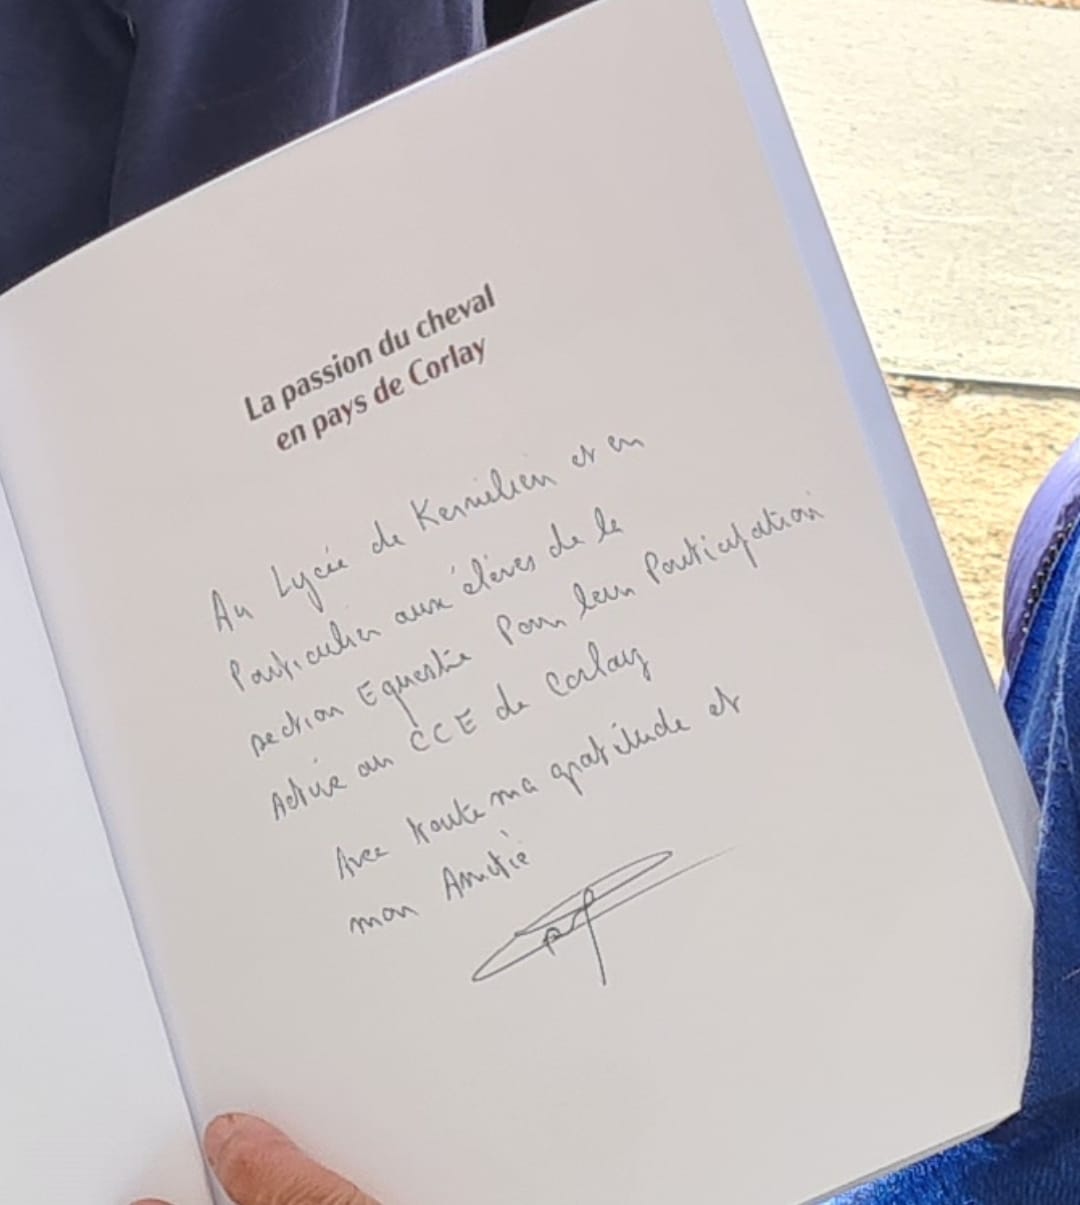 La passion du cheval
en pays de Corlay
Au Lycée de Kernilien et en
Particulier aux élèves de la
section Equestre Pour leur Participation
Active au CCE de Corlay
Avec toute ma gratitude et
mon Amitié